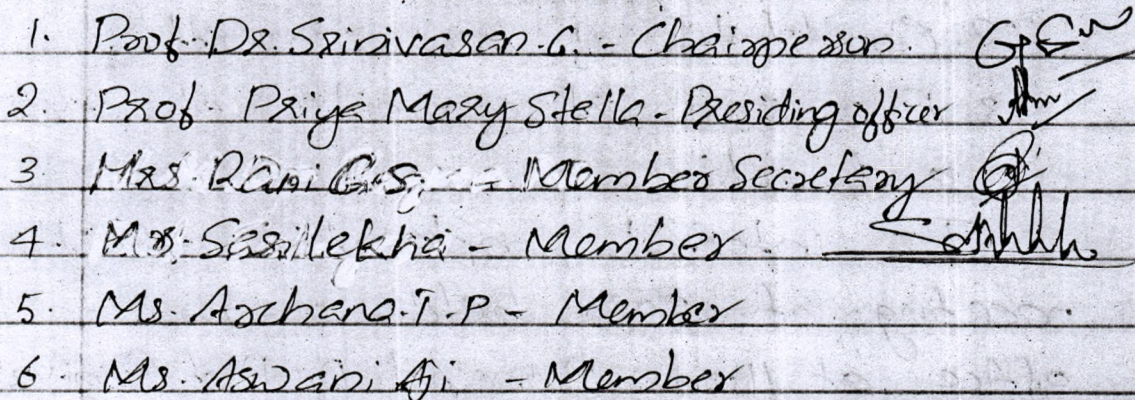 1. Prof. Dr. Srinivasan. G. - Chairperson.
2. Prof. Priya Mary Stella - Presiding officer
3 Mrs. Rani G.S. - Member Secretary
4. Mrs. Sasilekha - Member
5. Ms. Archana.T.P - Member
6. Ms. Aswani Aji - Member